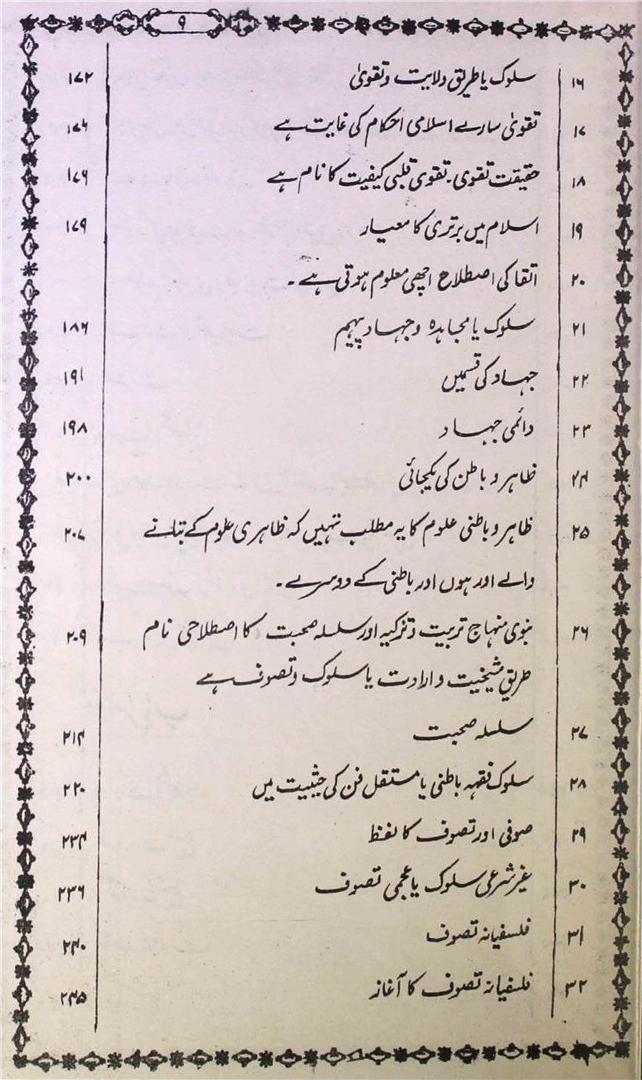 ۹
۱۶ سلوک یا طریق ولایت و تقویٰ ۱۷۲
۱۷ تقویٰ سارے اسلامی احکام کی غایت ہے ۱۷۴
۱۸ حقیقت تقویٰ۔ تقویٰ قلبی کیفیت کا نام ہے ۱۷۶
۱۹ اسلام میں برتری کا معیار ۱۷۹
۲۰ اتقا کی اصطلاح اچھی معلوم ہوتی ہے۔
۲۱ سلوک یا مجاہدہ و جہاد پیہم ۱۸۶
۲۲ جہاد کی قسمیں ۱۹۱
۲۳ دائمی جہاد ۱۹۸
۲۴ ظاہر و باطن کی یکجائی ۲۰۰
۲۵ ظاہر و باطنی علوم کا یہ مطلب نہیں کہ ظاہری علوم کے بتانے ۲۰۷
والے اور ہوں اور باطنی کے دوسرے۔
۲۶ نبوی منہاج تربیت و تزکیہ اور سلسلہ صحبت کا اصطلاحی نام ۲۰۹
طریق مشیخیت و ارادت یا سلوک و تصوف ہے
۲۷ سلسلہ صحبت ۲۱۴
۲۸ سلوک فقہہ باطنی یا مستقل فن کی حیثیت میں ۲۲۰
۲۹ صوفی اور تصوف کا لفظ ۲۳۴
۳۰ غیر شرعی سلوک یا عجمی تصوف ۲۳۶
۳۱ فلسفیانہ تصوف ۲۴۰
۳۲ فلسفیانہ تصوف کا آغاز ۲۴۵